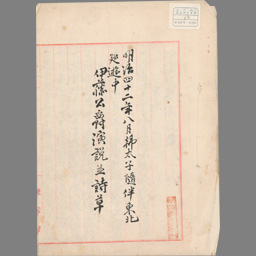 明治四十二年八月韓太子随伴東北
巡遊中
伊藤公爵演説並詩草